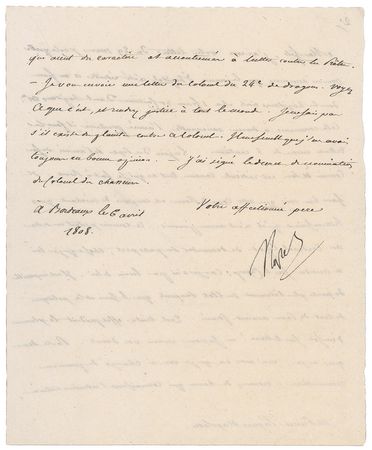 qui aient du caractère et accoutumés à lutter contre la
– Je vous envoie une lettre du Colonel du 24e de dragons. Voyez
ce que c'est, et rendez justice à tout le monde. Je ne sais pas
s'il existe de plainte contre ce Colonel. Il me semble que j'en avais
toujours eu bonne opinion. J'ai signé le décret de nomination
du Colonel de chasseurs
A Bordeaux le 6 avril
1808.
Votre affectionné père